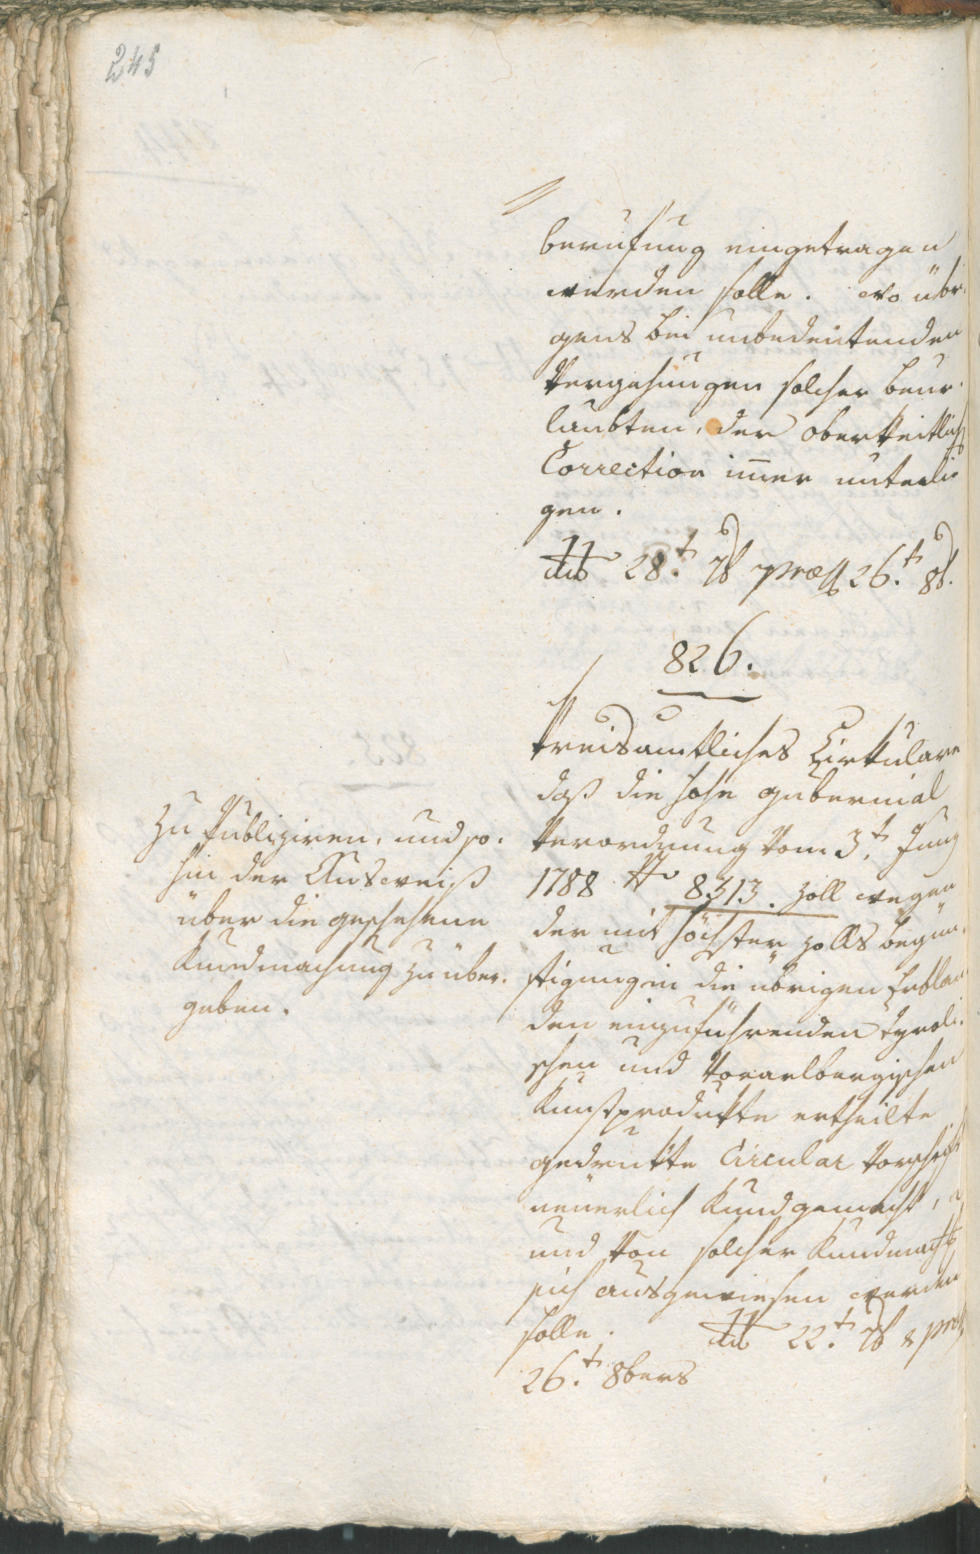 245
berufung eingetragen
werden solle. wo übri
gens bei unbedeutenden
Vergehungen solcher beur-
laubten, der oberkeitlich
Correction im̅er unterlie
gen.
ddo 28.t 7b praes 26.t 8b.
826.
Kreisamtliches Cirkulare
daß die hohe gubernial
Verordnung vom 3.t Juny
1788 No 8313. Zoll wegen
der mit höchster Zolls begün-
stigung in die übrigen Erblan
den einzuführenden tyroli-
schen und Vorarlbergischen
Kunstprodukte ertheilte
gedrukte Circular Vorschrift
neuerlich Kundgemacht,
und von solcher Kundmachg
sich ausgewiesen werden
solle. ddo 22.t 7b & praes
26.t 8bers
Zu Publiziren, und so-
hin der Ausweiß
über die geschehene
Kundmachung zu über-
geben.